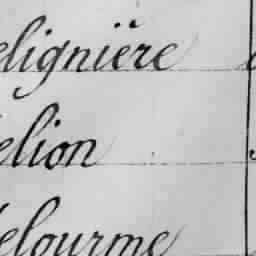 elignière
elion
elourme